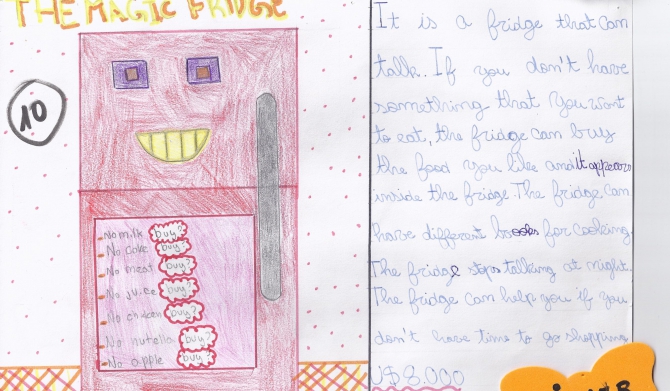 THE MAGIC FRIDGE
10
No milk buy?
No Coke buy?
No meat buy?
No juice buy?
No chicken buy?
No nutella buy?
No apple buy?
It is a fridge that can
talk. If you don't have
something that you want
to eat, the fridge can buy
the food you like and it appears
inside the fridge. The fridge can
have different books for cooking.
The fridge stops talking at night.
The fridge can help you if you
don't have time to go shopping
U$8.000